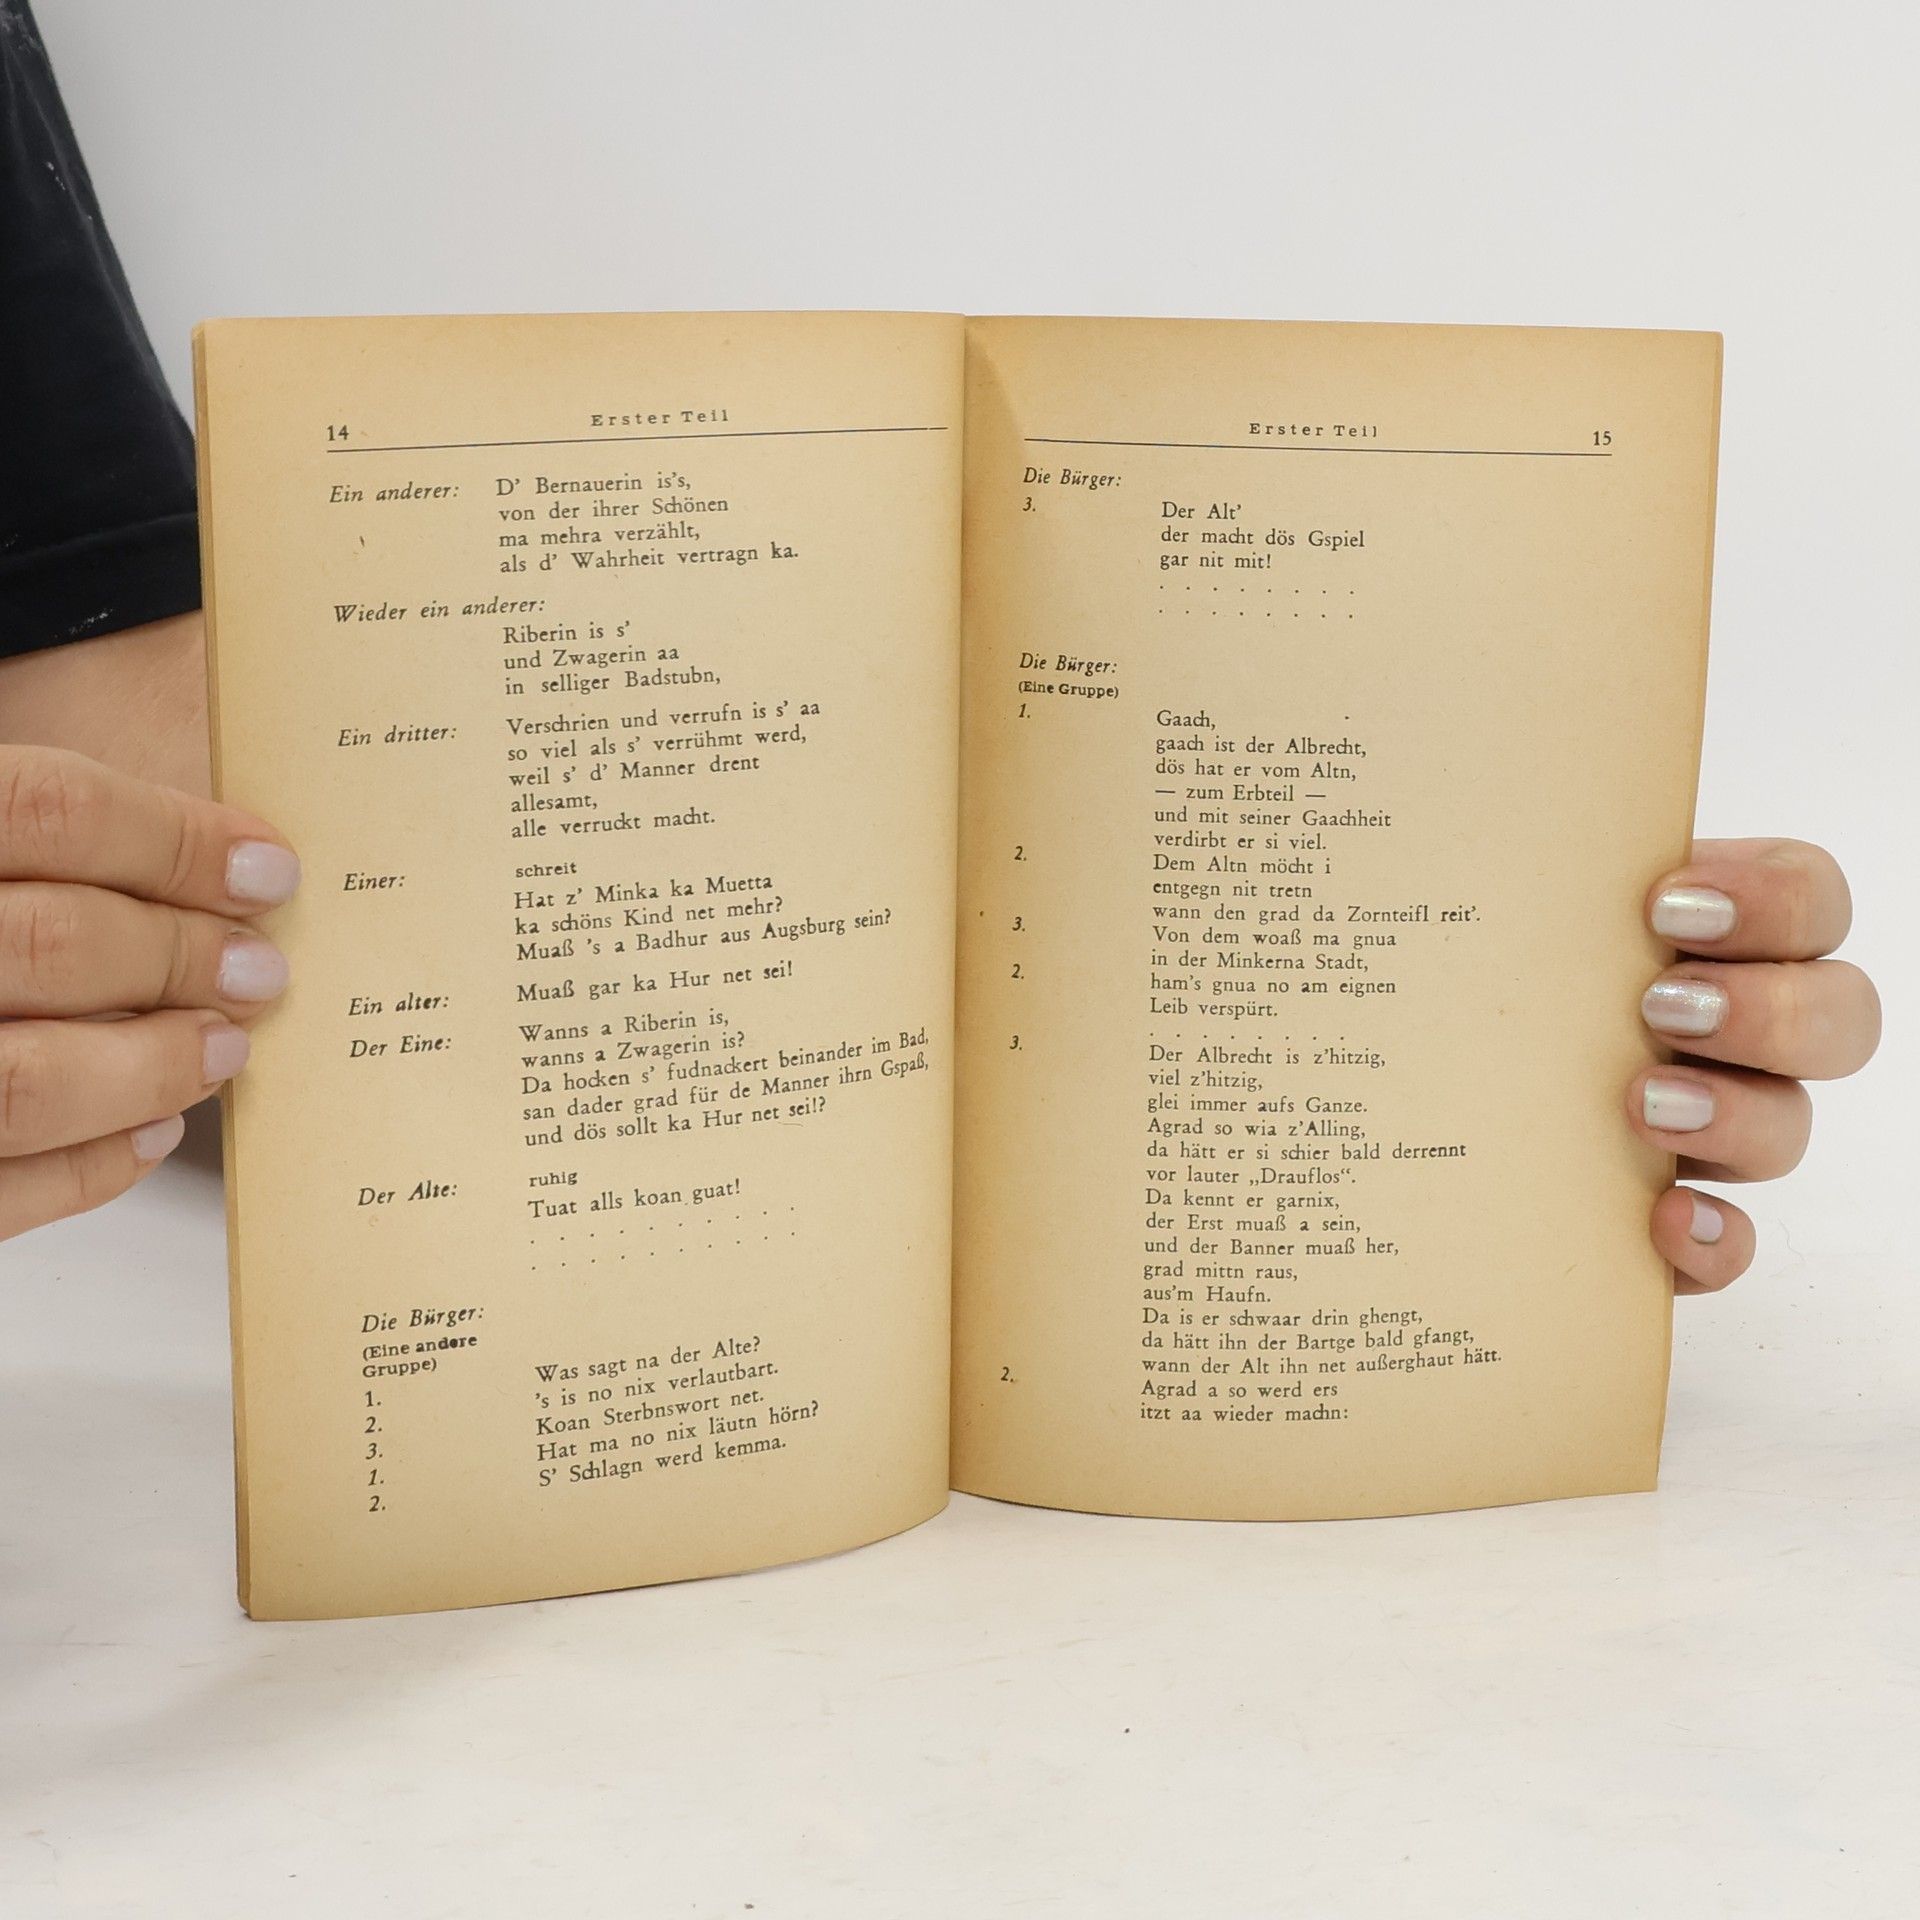 14 Erster Teil
Ein anderer: D' Bernauerin is's,
von der ihrer Schönen
ma mehra verzählt,
als d' Wahrheit vertragn ka.
Wieder ein anderer:
Riberin is s'
und Zwagerin aa
in selliger Badstubn,
Ein dritter: Verschrien und verrufn is s' aa
so viel als s' verrühmt werd,
weil s' d' Manner drent
allesamt,
alle verruckt macht.
Einer: schreit
Hat z' Minka ka Muetta
ka schöns Kind net mehr?
Muaß 's a Badhur aus Augsburg sein?
Ein alter: Muaß gar ka Hur net sei!
Der Eine: Wanns a Riberin is,
wanns a Zwagerin is?
Da hocken s' fudnackert beinander im Bad,
san dader grad für de Manner ihrn Gspaß,
und dös sollt ka Hur net sei!?
Der Alte: ruhig
Tuat alls koan guat!
. . . . . . . . .
. . . . . . . . .
Die Bürger:
(Eine andere
Gruppe)
1. Was sagt na der Alte?
2. 's is no nix verlautbart.
3. Koan Sterbnswort net.
1. Hat ma no nix läutn hörn?
2. S' Schlagn werd kemma.
Erster Teil 15
Die Bürger:
3. Der Alt'
der macht dös Gspiel
gar nit mit!
. . . . . . . .
. . . . . . . .
Die Bürger:
(Eine Gruppe)
1. Gaach,
gaach ist der Albrecht,
dös hat er vom Altn,
— zum Erbteil —
und mit seiner Gaachheit
verdirbt er si viel.
2. Dem Altn möcht i
entgegn nit tretn
wann den grad da Zornteifl reit'.
3. Von dem woaß ma gnua
in der Minkerna Stadt,
2. ham's gnua no am eignen
Leib verspürt.
. . . . . . . .
3. Der Albrecht is z'hitzig,
viel z'hitzig,
glei immer aufs Ganze.
Agrad so wia z'Alling,
da hätt er si schier bald derrennt
vor lauter „Drauflos“.
Da kennt er garnix,
der Erst muaß a sein,
und der Banner muaß her,
grad mittn raus,
aus'm Haufn.
Da is er schwaar drin ghengt,
da hätt ihn der Bartge bald gfangt,
wann der Alt ihn net außerghaut hätt.
2. Agrad a so werd ers
itzt aa wieder machn: